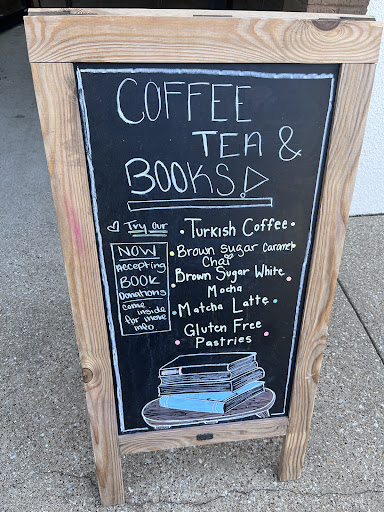 COFFEE
TEA &
BOOKS!
Try our
• Turkish Coffee •
• Brown Sugar Caramel
Chai
Brown Sugar White •
Mocha
• Matcha Latte •
Gluten Free
• Pastries
NOW
Accepting
BOOK
Donations
come
inside
for more
info